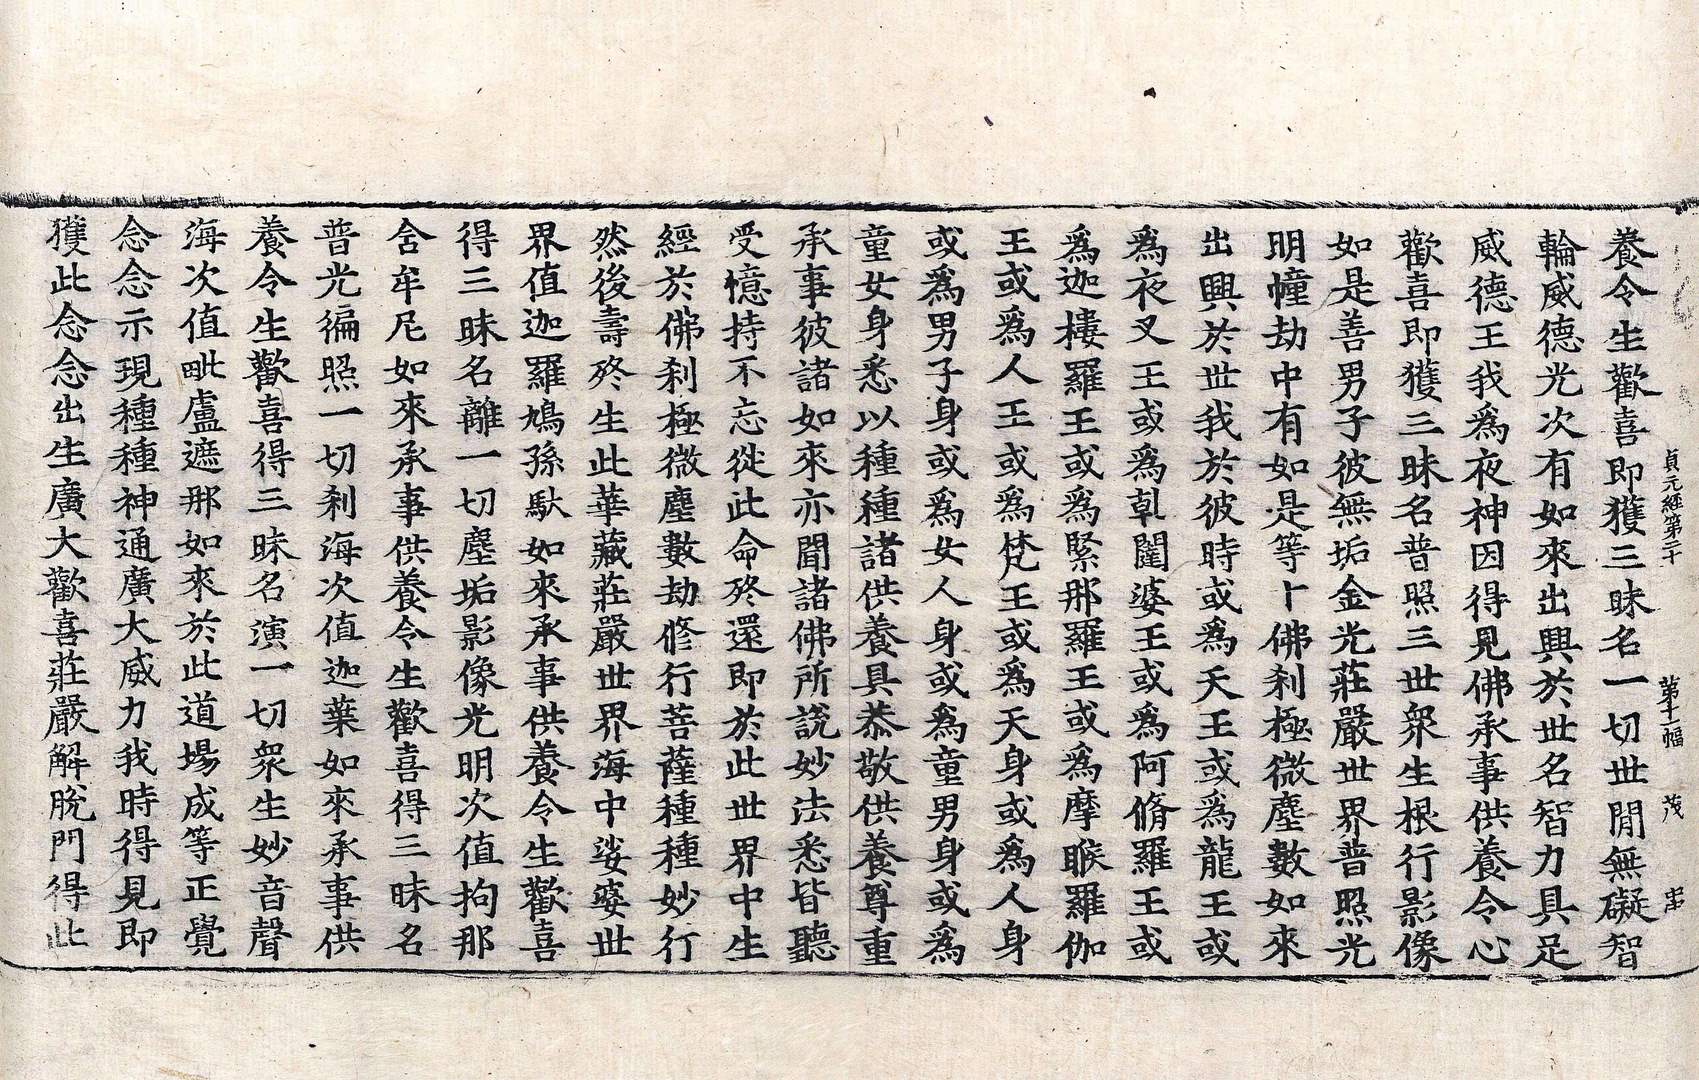 貞元經第二十 苐十一幅 茂
養令生歡喜即獲三昧名一切世閒無礙智
輪威德光次有如來出興於世名智力具足
威德王我爲夜神因得見佛承事供養令心
歡喜即獲三昧名普照三世眾生根行影像
如是善男子彼無垢金光莊嚴世界普照光
明幢劫中有如是等卜佛刹極微塵數如來
出興於世我於彼時或爲天王或爲龍王或
爲夜叉王或爲乹闥婆王或爲阿脩羅王或
爲迦樓羅王或爲緊那羅王或爲摩睺羅伽
王或爲人王或爲梵王或爲天身或爲人身
或爲男子身或爲女人身或爲童男身或爲
童女身悉以種種諸供養具恭敬供養尊重
承事彼諸如來亦聞諸佛所說妙法悉皆聽
受憶持不忘從此命終還即於此世界中生
經於佛刹極微塵數劫修行菩薩種種妙行
然後壽終生此華藏莊嚴世界海中娑婆世
界值迦羅鳩孫馱如來承事供養令生歡喜
得三昧名離一切塵垢影像光明次值拘那
含牟尼如來承事供養令生歡喜得三昧名
普光徧照一切刹海次值迦葉如來承事供
養令生歡喜得三昧名演一切眾生妙音聲
海次值毗盧遮那如來於此道場成等正覺
念念示現種種神通廣大威力我時得見即
獲此念念出生廣大歡喜莊嚴解脫門得此